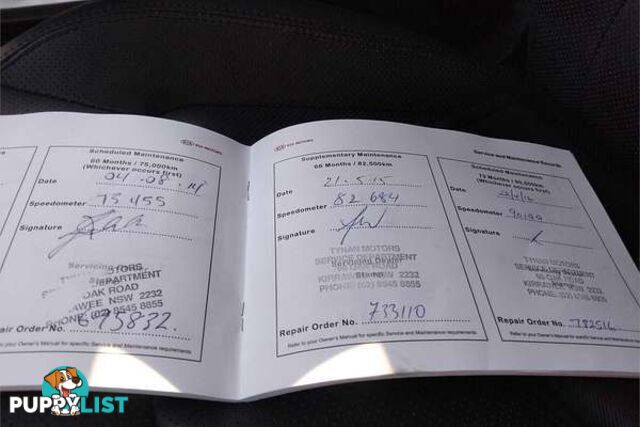 KIA MOTORS
Scheduled Maintenance
60 Months / 75,000km
(Whichever occurs first)
Date 04.08.14
Speedometer 75 455
Signature
Servicing
MOTORS
DEPARTMENT
OAK ROAD
AWEE NSW 2232
PHONE: (02) 8545 8855
Repair Order No. 673832.
Refer to your Owner's Manual for specific Service and Maintenance requirements
KIA MOTORS
Supplementary Maintenance
66 Months / 82,500km
Date 21.5.15
Speedometer 82 684
Signature
TYNAN MOTORS
SERVICE DEPARTMENT
OAK ROAD
NSW 2232
PHONE: (02) 8545 8855
Repair Order No. 733110
Refer to your Owner's Manual for specific Service and Maintenance requirements
Service and Maintenance Records
Scheduled Maintenance
(Whichever occurs first)
Date
Speedometer
Signature
TYNAN MOTORS
SERVICE DEPARTMENT
OAK ROAD
Repair Order No. 782516
Refer to your Owner's Manual for specific Service and Maintenance
PUPPYLIST